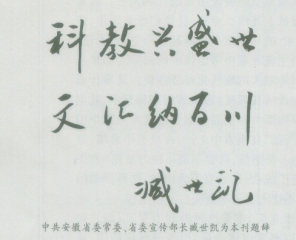 科教兴盛世
文汇纳百川
臧世凯
中共安徽省委常委、省委宣传部长臧世凯为本刊题辞